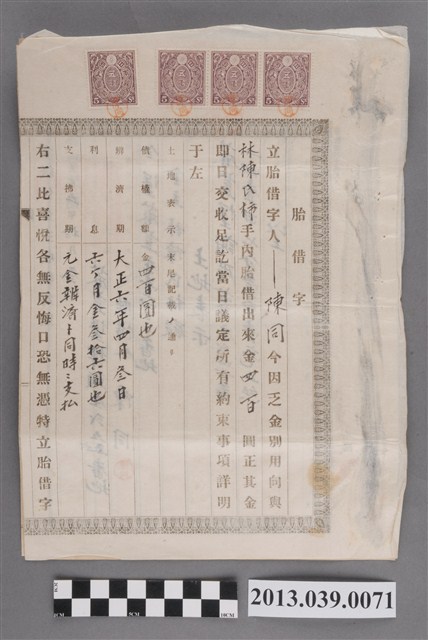 胎借字
立胎借字人 陳同 今因乏金別用向與
林陳氏 手內胎借出來金四百 圓正其金
即日交收足訖當日議定所有約束事項詳明
于左
土地表示末尾記載ノ通リ
債權額 金四百圓也
辨濟期 大正六年四月叁日
利息 六ケ月金叁拾六圓也
支拂期 元金辨濟ト同時ニ支払
右二比喜悅各無反悔口恐無憑特立胎借字
2013.039.0071